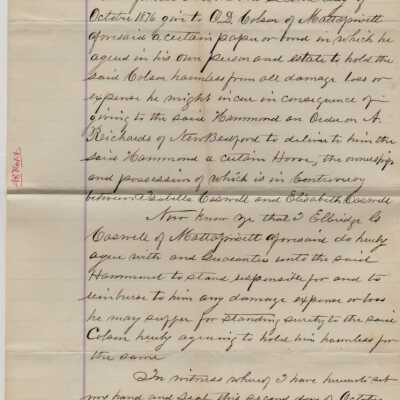 October 1876 give to O. D. Colson of Mattapoisett
aforesaid a certain paper or bond in which he
agreed in his own person and estate to hold the
said Colson harmless from all damage loss or
expense he might incur in consequence of
giving to the said Hammond an Order on A.
Reichards of New Bedford to deliver to him the
said Hammond a certain Horse, the ownership
and possession of which is in Controversy
between Isabella Caswell and Elisabeth Caswell
Now know ye that I Elbridge G
Caswell of Mattapoisett aforesaid do hereby
agree with and Guarantee unto the said
Hammond to stand responsible for and to
reimburse to him any damage expense or loss
he may suffer for standing surety to the said
Colson hereby agreeing to hold him harmless for
the same
In witness whereof I have hereunto set
my hand and seal this second day of October